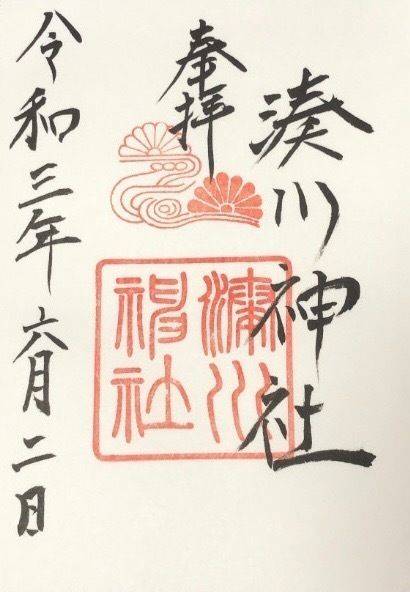 奉拝
湊川神社
湊川
神社
令和三年六月二日